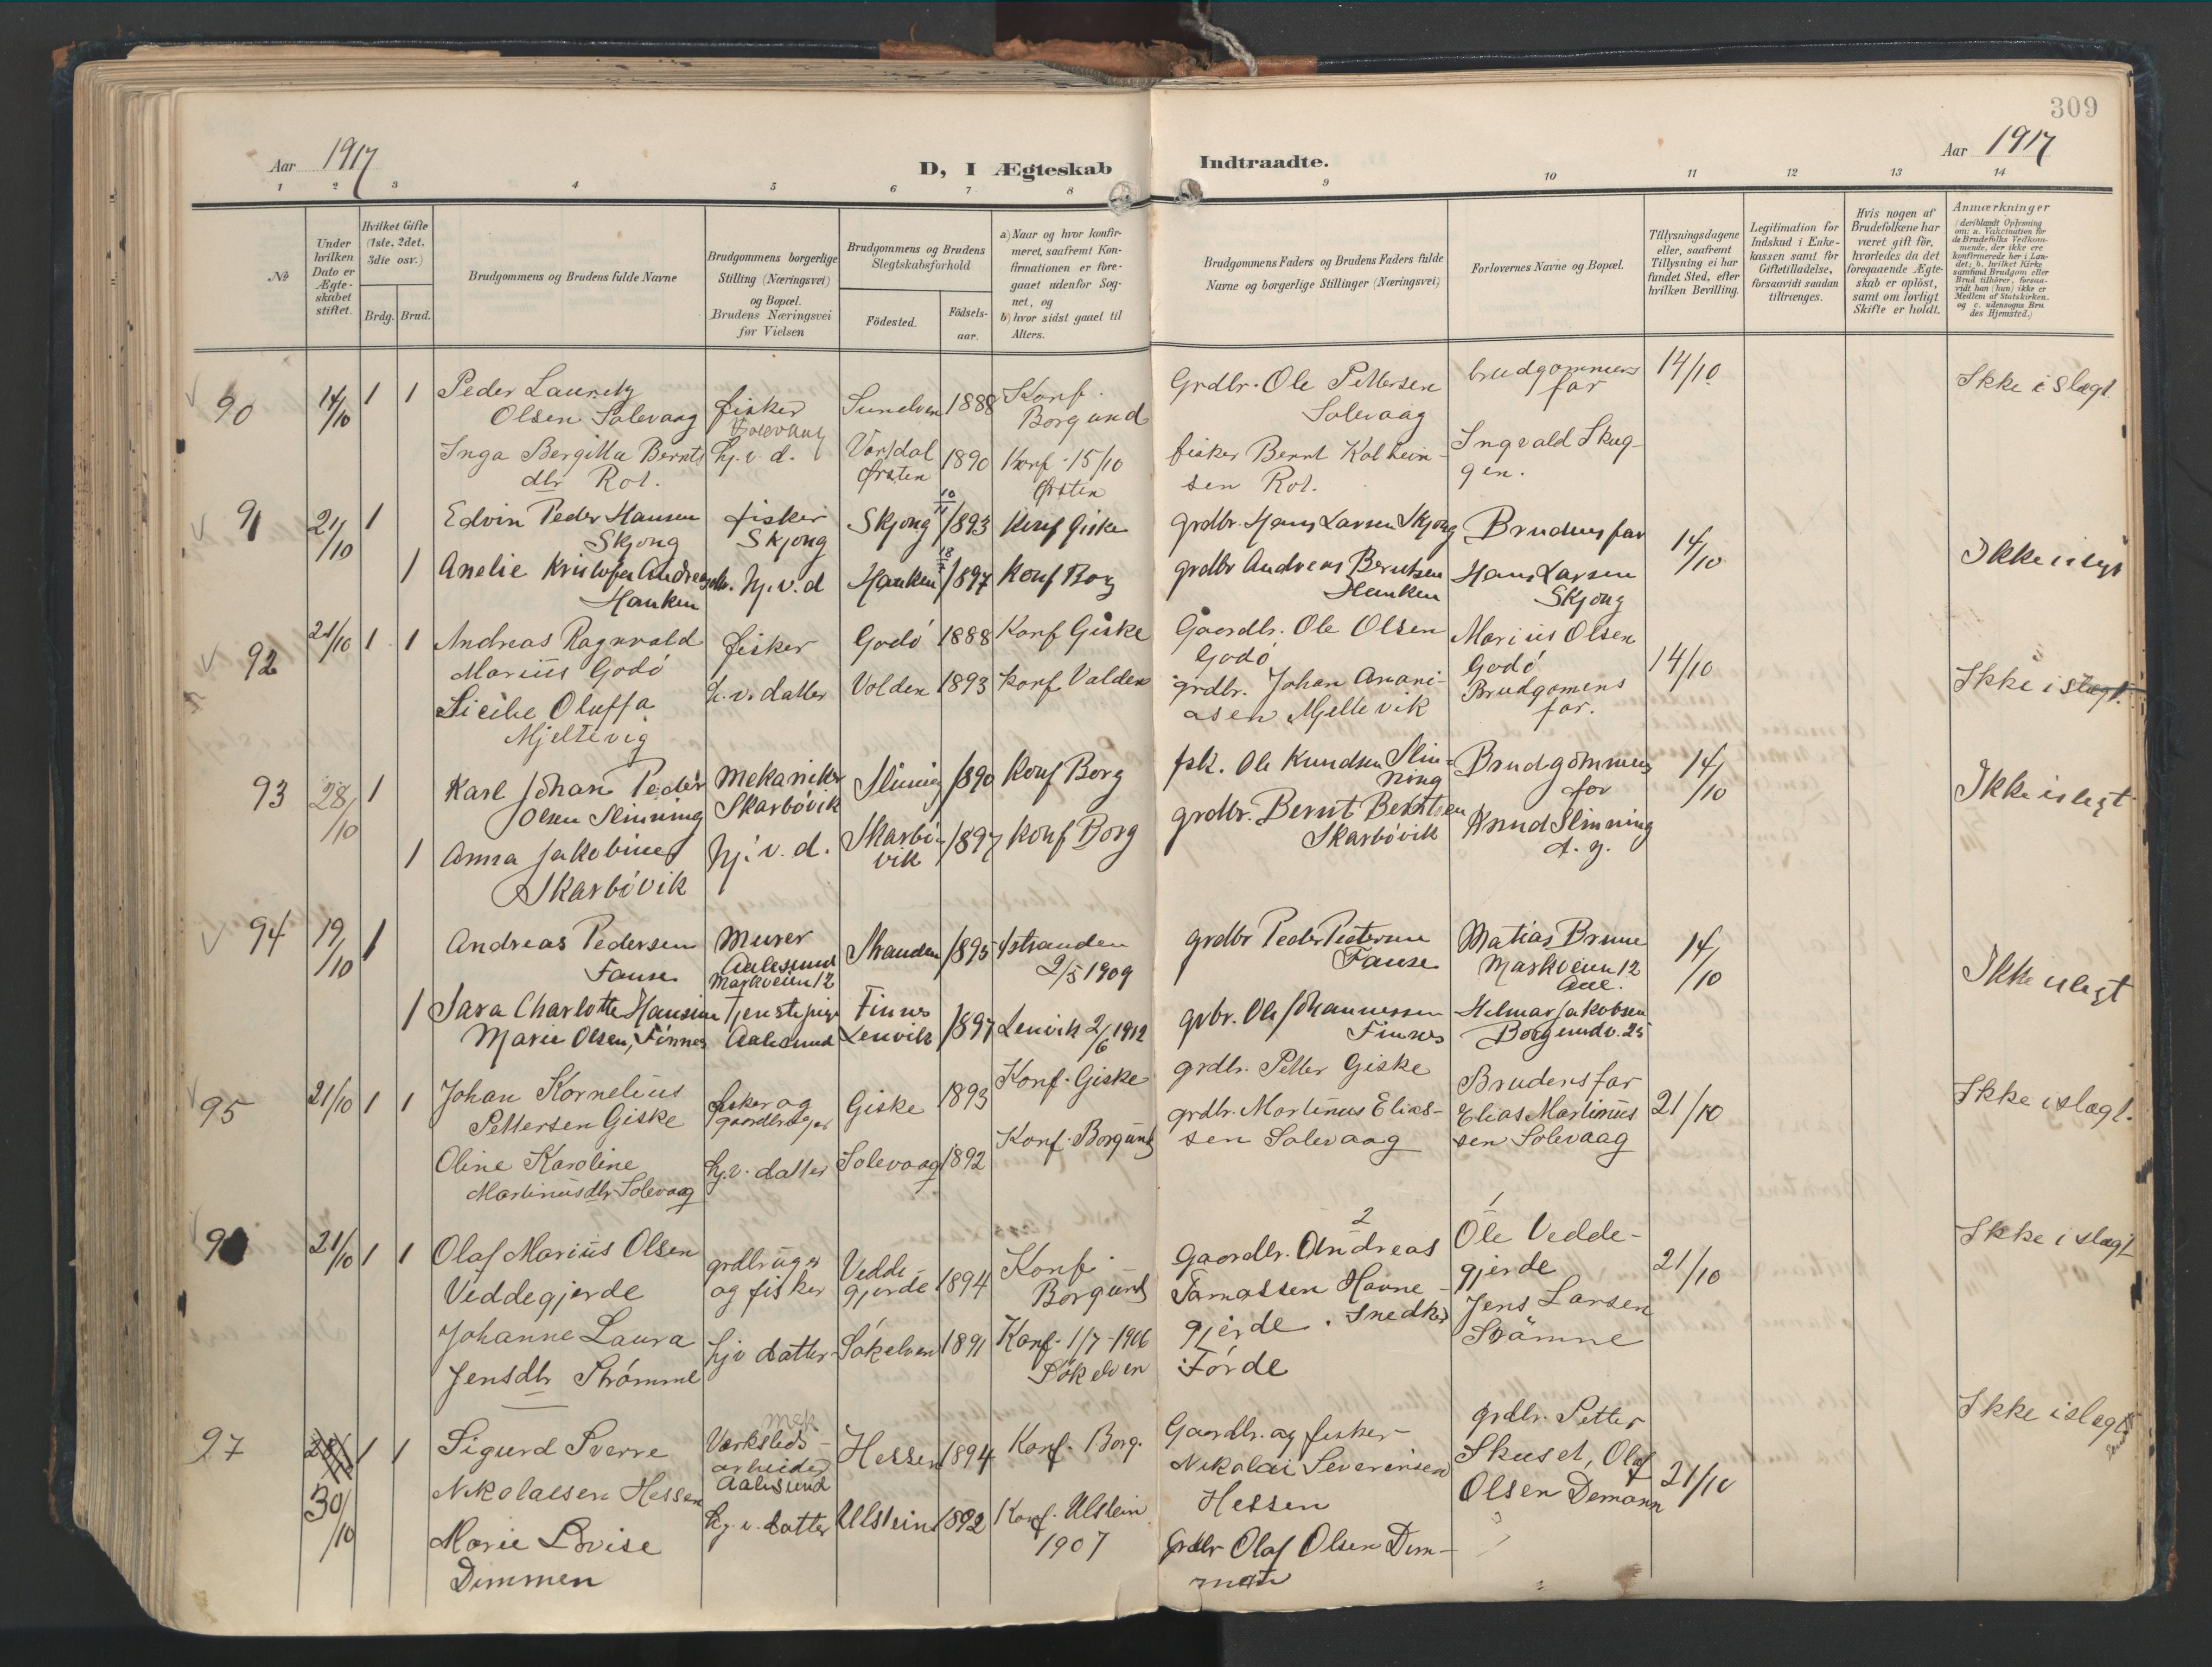 309
Aar 1917
D, I Ægteskab
Indtraadte.
Aar 1917
1 2 3 4 5 6 7 8 9 10 11 12 13 14
No
Under hvilken Dato er Ægteskabet stiftet.
Hvilket Gifte (1ste, 2det, 3die osv.)
Brdg. Brud.
Brudgommens og Brudens fulde Navne
Brudgommens borgerlige Stilling (Næringsvei) og Bopæl. Brudens Næringsvei før Vielsen
Brudgommens og Brudens Slegtskabsforhold
Fødested.
Fødsels-aar.
a) Naar og hvor konfirmeret, saafremt Konfirmationen er foregaaet udenfor Sognet, og
b) hvor sidst gaaet til Alters.
Brudgommens Faders og Brudens Faders fulde Navne og borgerlige Stillinger (Næringsvei)
Forlovernes Navne og Bopæl.
Tillysningsdagene eller, saafremt Tillysning ei har fundet Sted, efter hvilken Bevilling.
Legitimation for Indskud i Enkekassen samt for Giftetilladelse, forsaavidt saadan tiltrænges.
Hvis nogen af Brudefolkene har været gift før, hvorledes da det foregaaende Ægteskab er opløst, samt om lovligt Skifte er holdt.
Anmærkninger
(deriblandt Oplysning om: a. Vakcination for de Brudefolks Vedkommende, der ikke ere konfirmerede her i Landet; b. hvilket Kirkesamfund Brudgom eller Brud tilhører, forsaavidt han (hun) ikke er Medlem af Statskirken. og c. udensogns Brudes Hjemsted.)
90 14/10 1 1
Peder Lauritz
Olsen Solevaag
fisker
Solevaag
Sunelven 1888
Konf.
Borgund
Grdbr. Ole Pettersen
Solevaag
brudgommens
far
14/10
Ikke i slægt
Inga Bergitta Bernts
dtr Rot.
hj. v. d.
Vartdal
Ørsten
1890
Konf. 15/10
Ørsten
fisker Bernt Kolbein-
sen Rot.
Ingvald Skug-
gen.
91 21/10 1
Edvin Peder Hansen
Skjong
fisker
Skjong
Skjong 10/11 1893
Konf Giske
grdbr. Hans Larsen Skjong
Brudens far
14/10
Ikke i slegt
1 Anelie Kristofa Andreasdtr.
Hanken
hj. v. d
Hanken 1897
Konf Borg
grdbr Andreas Berntsen
Hanken
Hans Larsen
Skjong
92 21/10 1 1
Andreas Ragnvald
Marius Godö
fisker
Godö 1888
Konf Giske
Gaardbr. Ole Olsen
Godö
Marius Olsen
Godö
14/10
Ikke i slægt.
Sicilie Oluffa
Mjeltevig
h. v. datter
Volden 1893
Konf Valden
grdbr. Johan Anani-
asen Mjeltevik
Brudgomens
far.
93 28/10 1
Karl Johan Peder
Olsen Slinning
Mekaniker
Skarbövik
Slining 1890
Konf Borg
fsk. Ole Knudsen Slin-
ning
Brudgommens
far
14/10
Ikke i slegt
1 Anna Jakobine
Skarbövik
hj. v. d.
Skarbö-
vik
1897
Konf Borg
grdbr. Bernt Berntsen
Skarbövik
Knud Slinning
d. y.
94 19/10 1
Andreas Pedersen
Fause
Murer
Aalesund
Markveien 12
Stranden 1895
Stranden
2/5 1909
grdbr Peder Petersen
Fause
Matias Brune
Markveien 12
Aal.
14/10
Ikke i slegt
1 Sara Charlotte Hansine
Marie Olsen, Finnes
Tjenstepige
Aalesund
Finnes
Lenvik
1897
Lenvik 2/6 1912
grbr. Ole Johannessen
Finnes
Hilmar Jakobsen
Borgundv. 25
95 21/10 1 1
Johan Kornelius
Pettersen Giske
fisker og
gaardbruger
Giske 1893
Konf. Giske
grdbr. Petter Giske
Brudens far
21/10
Ikke i slægt.
Oline Karoline
Martinusdtr Solevaag
hj. v. datter
Solevaag 1892
Konf. Borgund
grdbr. Martinus Elias-
sen Solevaag
Elias Martinus
sen Solevaag
21/10 1 1
Olaf Marius Olsen
Veddegjerde
grdbruger
og fisker
Vedde-
gjerde
1894
Konf.
Borgund
2
Gaardbr. Andreas
Tomassen Havne-
gjerde. Snedker
Förde
1
Ole Vedde-
gjerde
21/10
Ikke i slægt
Johanne Laura
Jensdtr Strömme
hjv datter
Sökelven 1891
Konf. 1/7-1906
Sökelven
Jens Larsen
Strömme
97 30/10 1 1
Sigurd Sverre
Nikolaisen Hessen
mek
Værksteds-
arbeider
Aalesund
Hessen 1894
Konf. Borg.
Gaardbr. og fisker
Nikolai Severinsen
Hessen
grdbr. Petter
Skuset, Olaf
Olsen Demann
21/10
Ikke i slægt
Marie Lovise
Dimmen
hj. v. datter
Ulstein 1892
Konf. Ulstein
1907
Grdbr Olaf Olsen Dim-